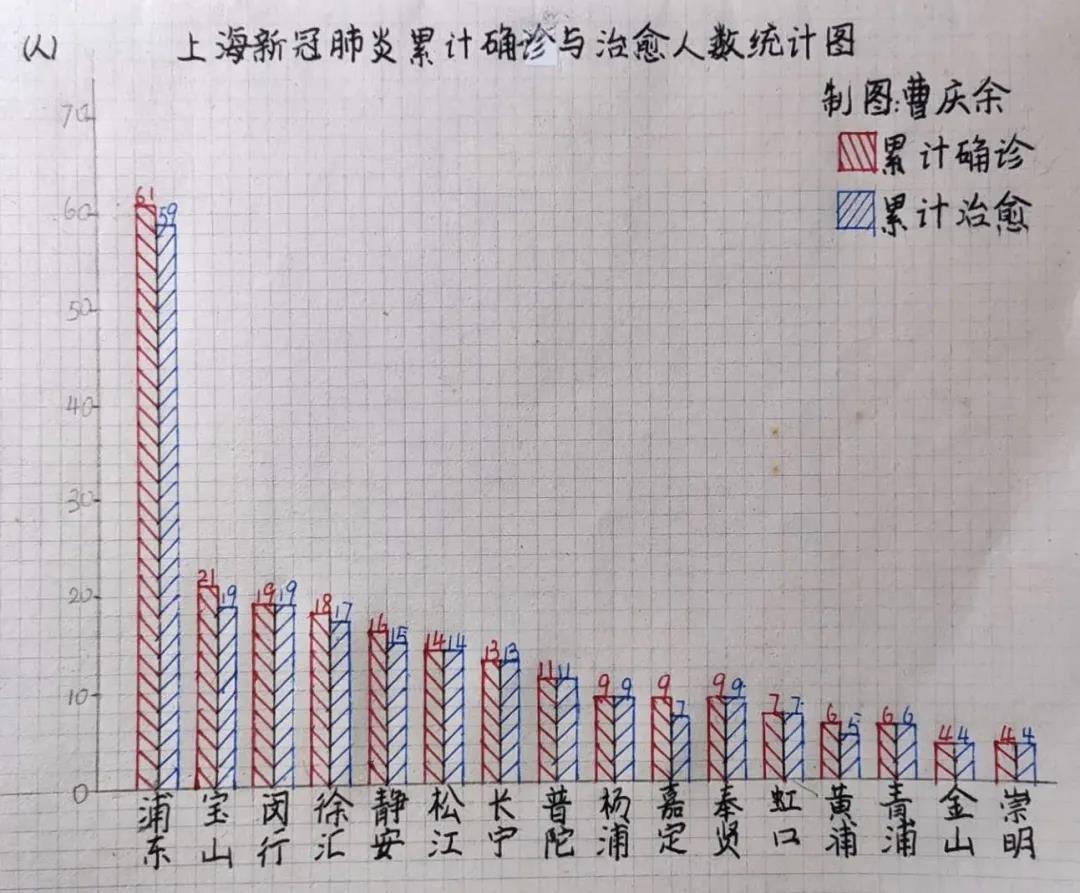 (人) 上海新冠肺炎累计确诊与治愈人数统计图
制图:曹庆余
累计确诊
累计治愈
70
60
50
40
30
20
10
0
61 59
21 19
19 19
18 17
16 15
14 14
13 13
11 11
9 9
9 7
9 9
7 7
6 5
6 6
4 4
4 4
浦东
宝山
闵行
徐汇
静安
松江
长宁
普陀
杨浦
嘉定
奉贤
虹口
黄浦
青浦
金山
崇明